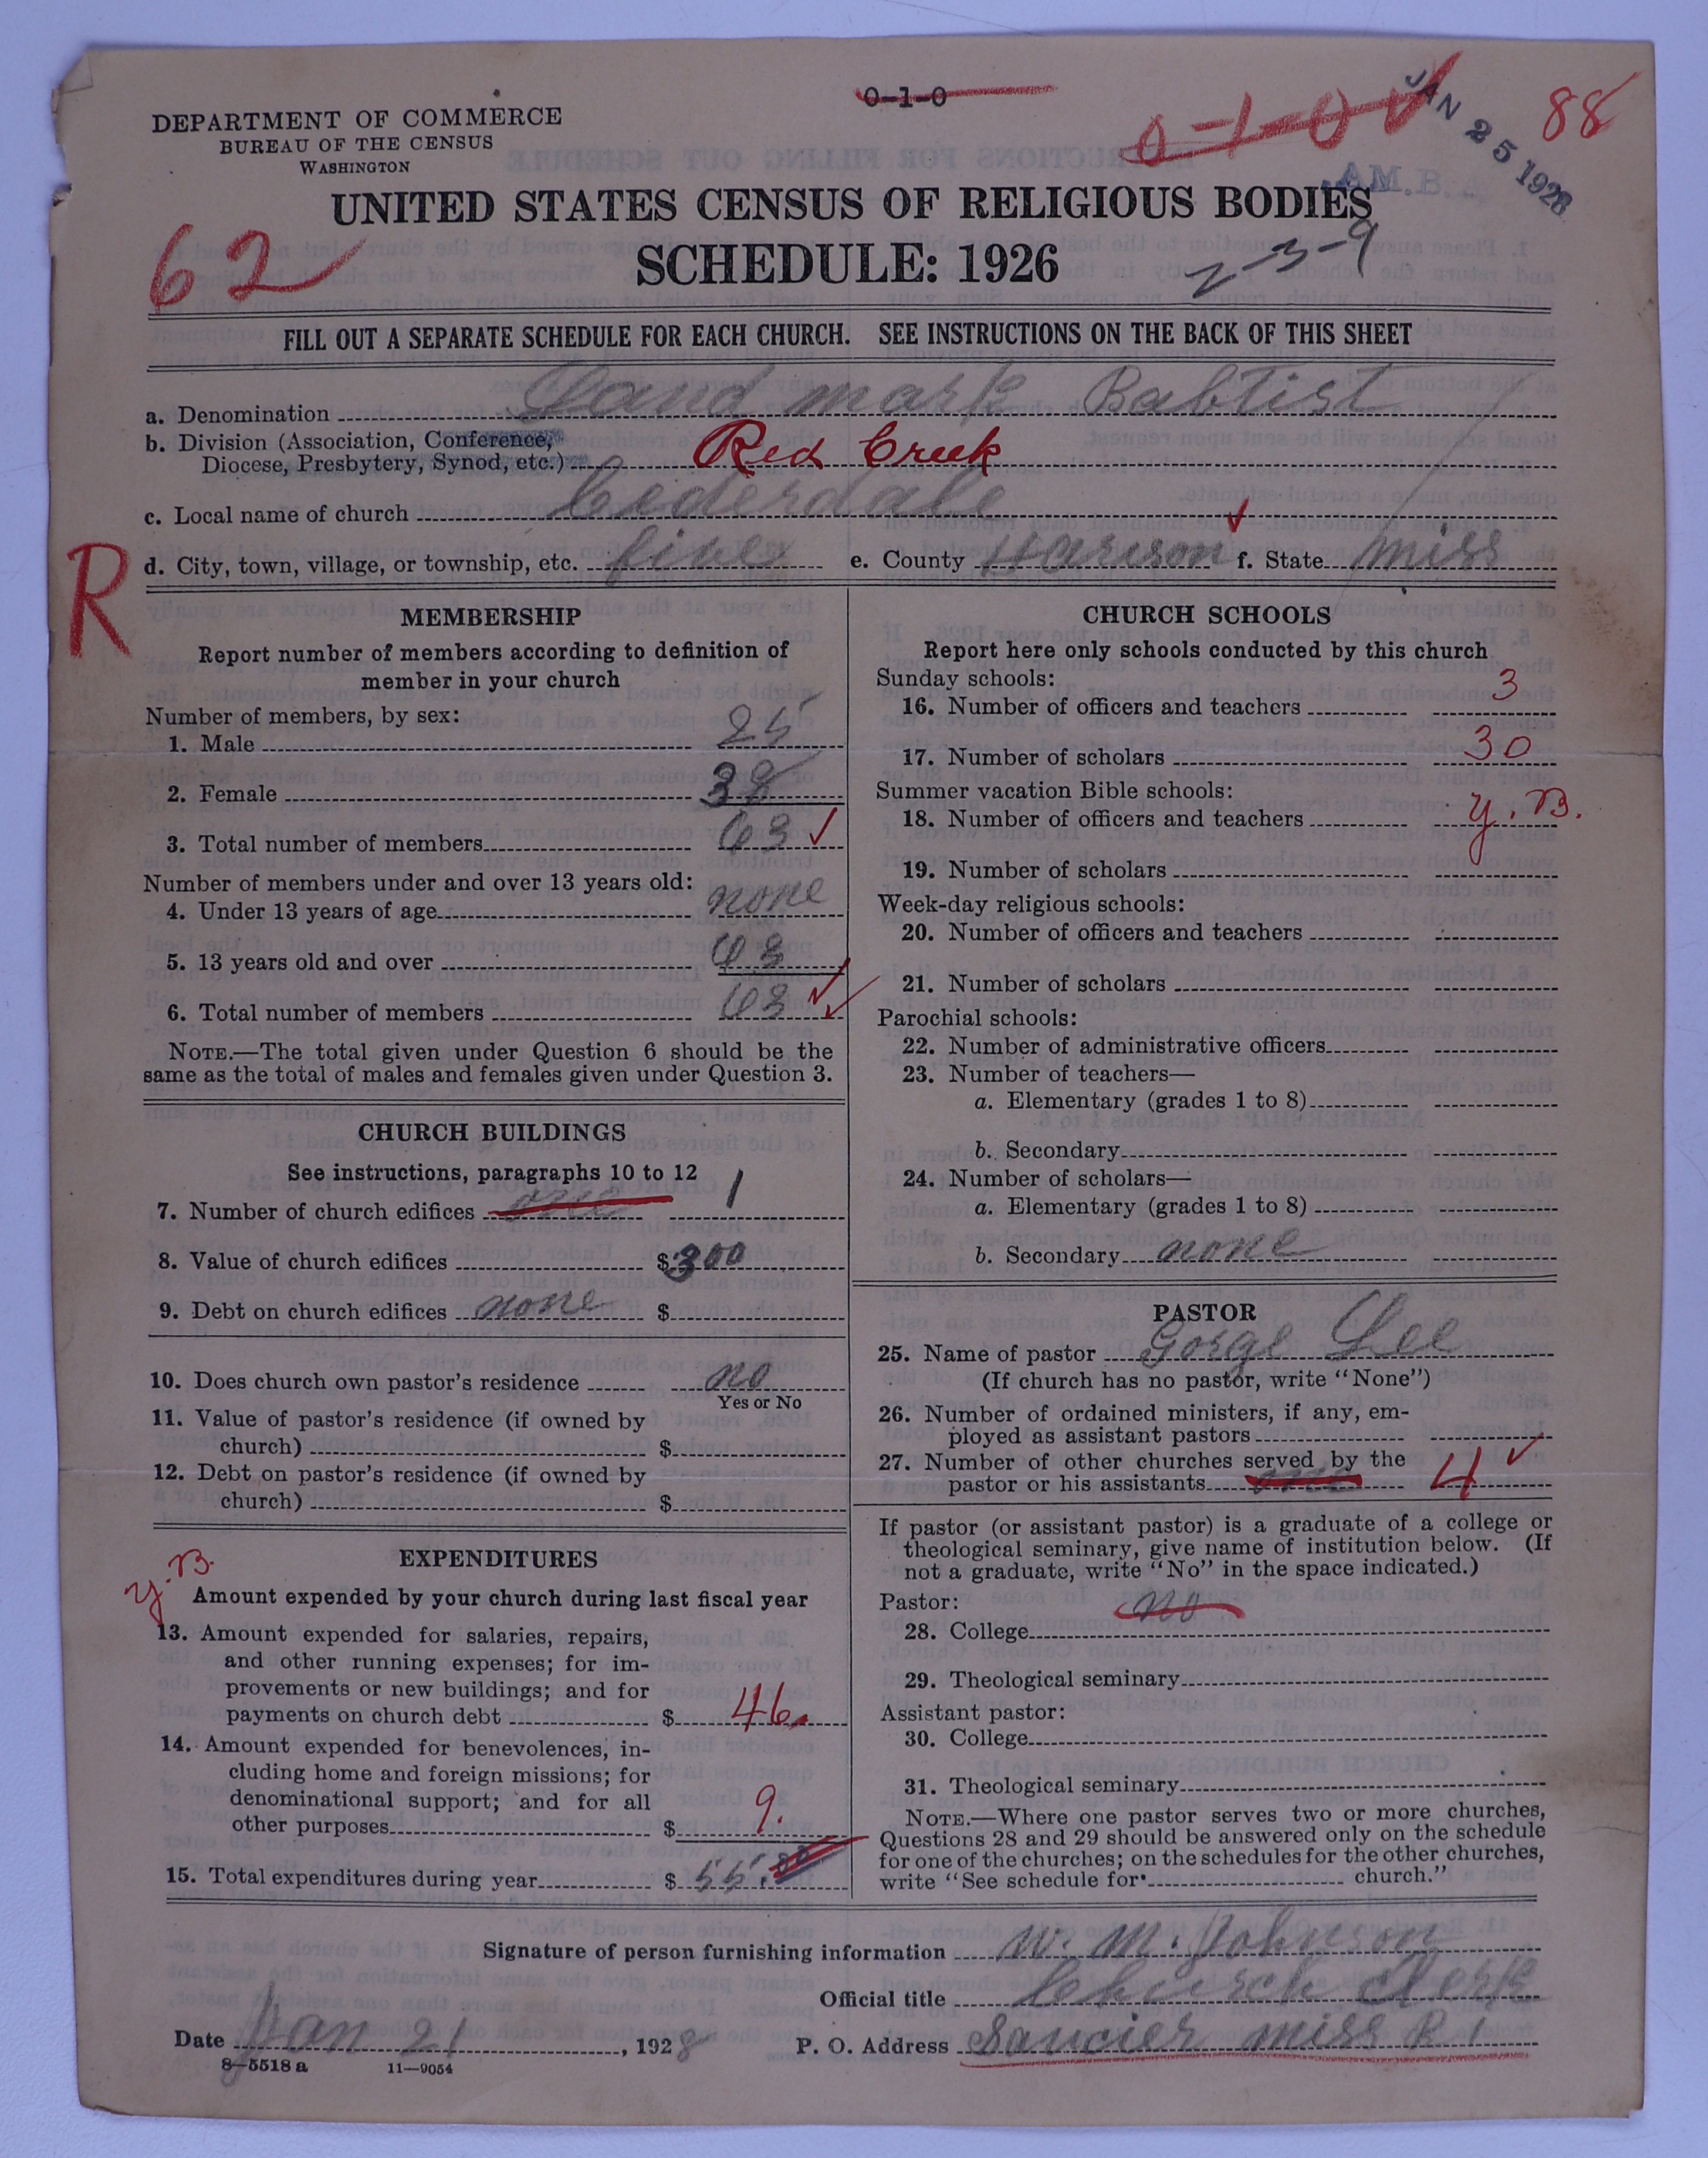 0-1-0
0-1-0
JAN 25 1928
88
A.M.B.A.
DEPARTMENT OF COMMERCE
BUREAU OF THE CENSUS
WASHINGTON
UNITED STATES CENSUS OF RELIGIOUS BODIES
SCHEDULE: 1926
62
2-3-9
FILL OUT A SEPARATE SCHEDULE FOR EACH CHURCH. SEE INSTRUCTIONS ON THE BACK OF THIS SHEET
a. Denomination Land mark Babtist
b. Division (Association, Conference,
Diocese, Presbytery, Synod, etc.) Red Creek
c. Local name of church Cederdale
R
d. City, town, village, or township, etc. five e. County Harison f. State miss
MEMBERSHIP
Report number of members according to definition of
member in your church
Number of members, by sex:
1. Male 25
2. Female 38
3. Total number of members 63
Number of members under and over 13 years old:
4. Under 13 years of age none
5. 13 years old and over 63
6. Total number of members 63
NOTE.—The total given under Question 6 should be the
same as the total of males and females given under Question 3.
CHURCH BUILDINGS
See instructions, paragraphs 10 to 12
7. Number of church edifices one 1
8. Value of church edifices $ 300
9. Debt on church edifices none $
10. Does church own pastor's residence no
Yes or No
11. Value of pastor's residence (if owned by
church) $
12. Debt on pastor's residence (if owned by
church) $
EXPENDITURES
y.B.
Amount expended by your church during last fiscal year
13. Amount expended for salaries, repairs,
and other running expenses; for im-
provements or new buildings; and for
payments on church debt $ 46.
14. Amount expended for benevolences, in-
cluding home and foreign missions; for
denominational support; and for all
other purposes $ 9.
15. Total expenditures during year $ 55.00
CHURCH SCHOOLS
Report here only schools conducted by this church
Sunday schools:
16. Number of officers and teachers 3
17. Number of scholars 30
Summer vacation Bible schools:
18. Number of officers and teachers y.B.
19. Number of scholars
Week-day religious schools:
20. Number of officers and teachers
21. Number of scholars
Parochial schools:
22. Number of administrative officers
23. Number of teachers—
a. Elementary (grades 1 to 8)
b. Secondary
24. Number of scholars—
a. Elementary (grades 1 to 8)
b. Secondary none
PASTOR
25. Name of pastor Gorge Lee
(If church has no pastor, write "None")
26. Number of ordained ministers, if any, em-
ployed as assistant pastors
27. Number of other churches served by the
pastor or his assistants one 4
If pastor (or assistant pastor) is a graduate of a college or
theological seminary, give name of institution below. (If
not a graduate, write "No" in the space indicated.)
Pastor: no
28. College
29. Theological seminary
Assistant pastor:
30. College
31. Theological seminary
NOTE.—Where one pastor serves two or more churches,
Questions 28 and 29 should be answered only on the schedule
for one of the churches; on the schedules for the other churches,
write "See schedule for church."
Signature of person furnishing information W. M. Johnson
Official title Church Clerk
Date Jan 21, 1928 P. O. Address Saucier miss R 1
8—5518 a 11—9054